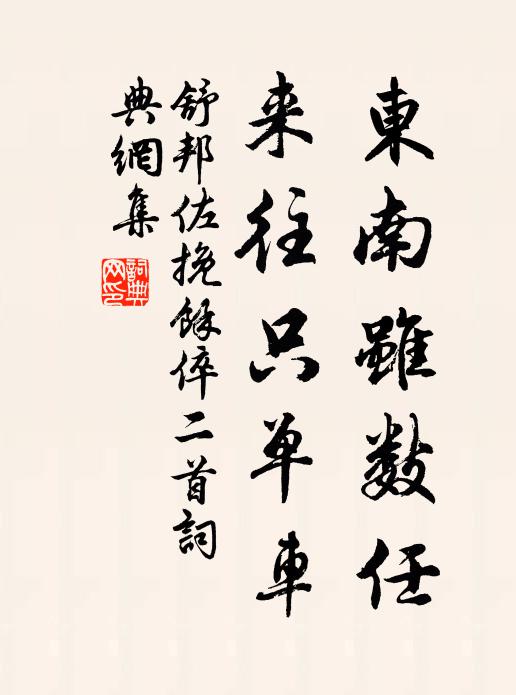 東南雖数任
来往只单車
舒邦佐挽餘倅二首詞
典網集
詞典网印